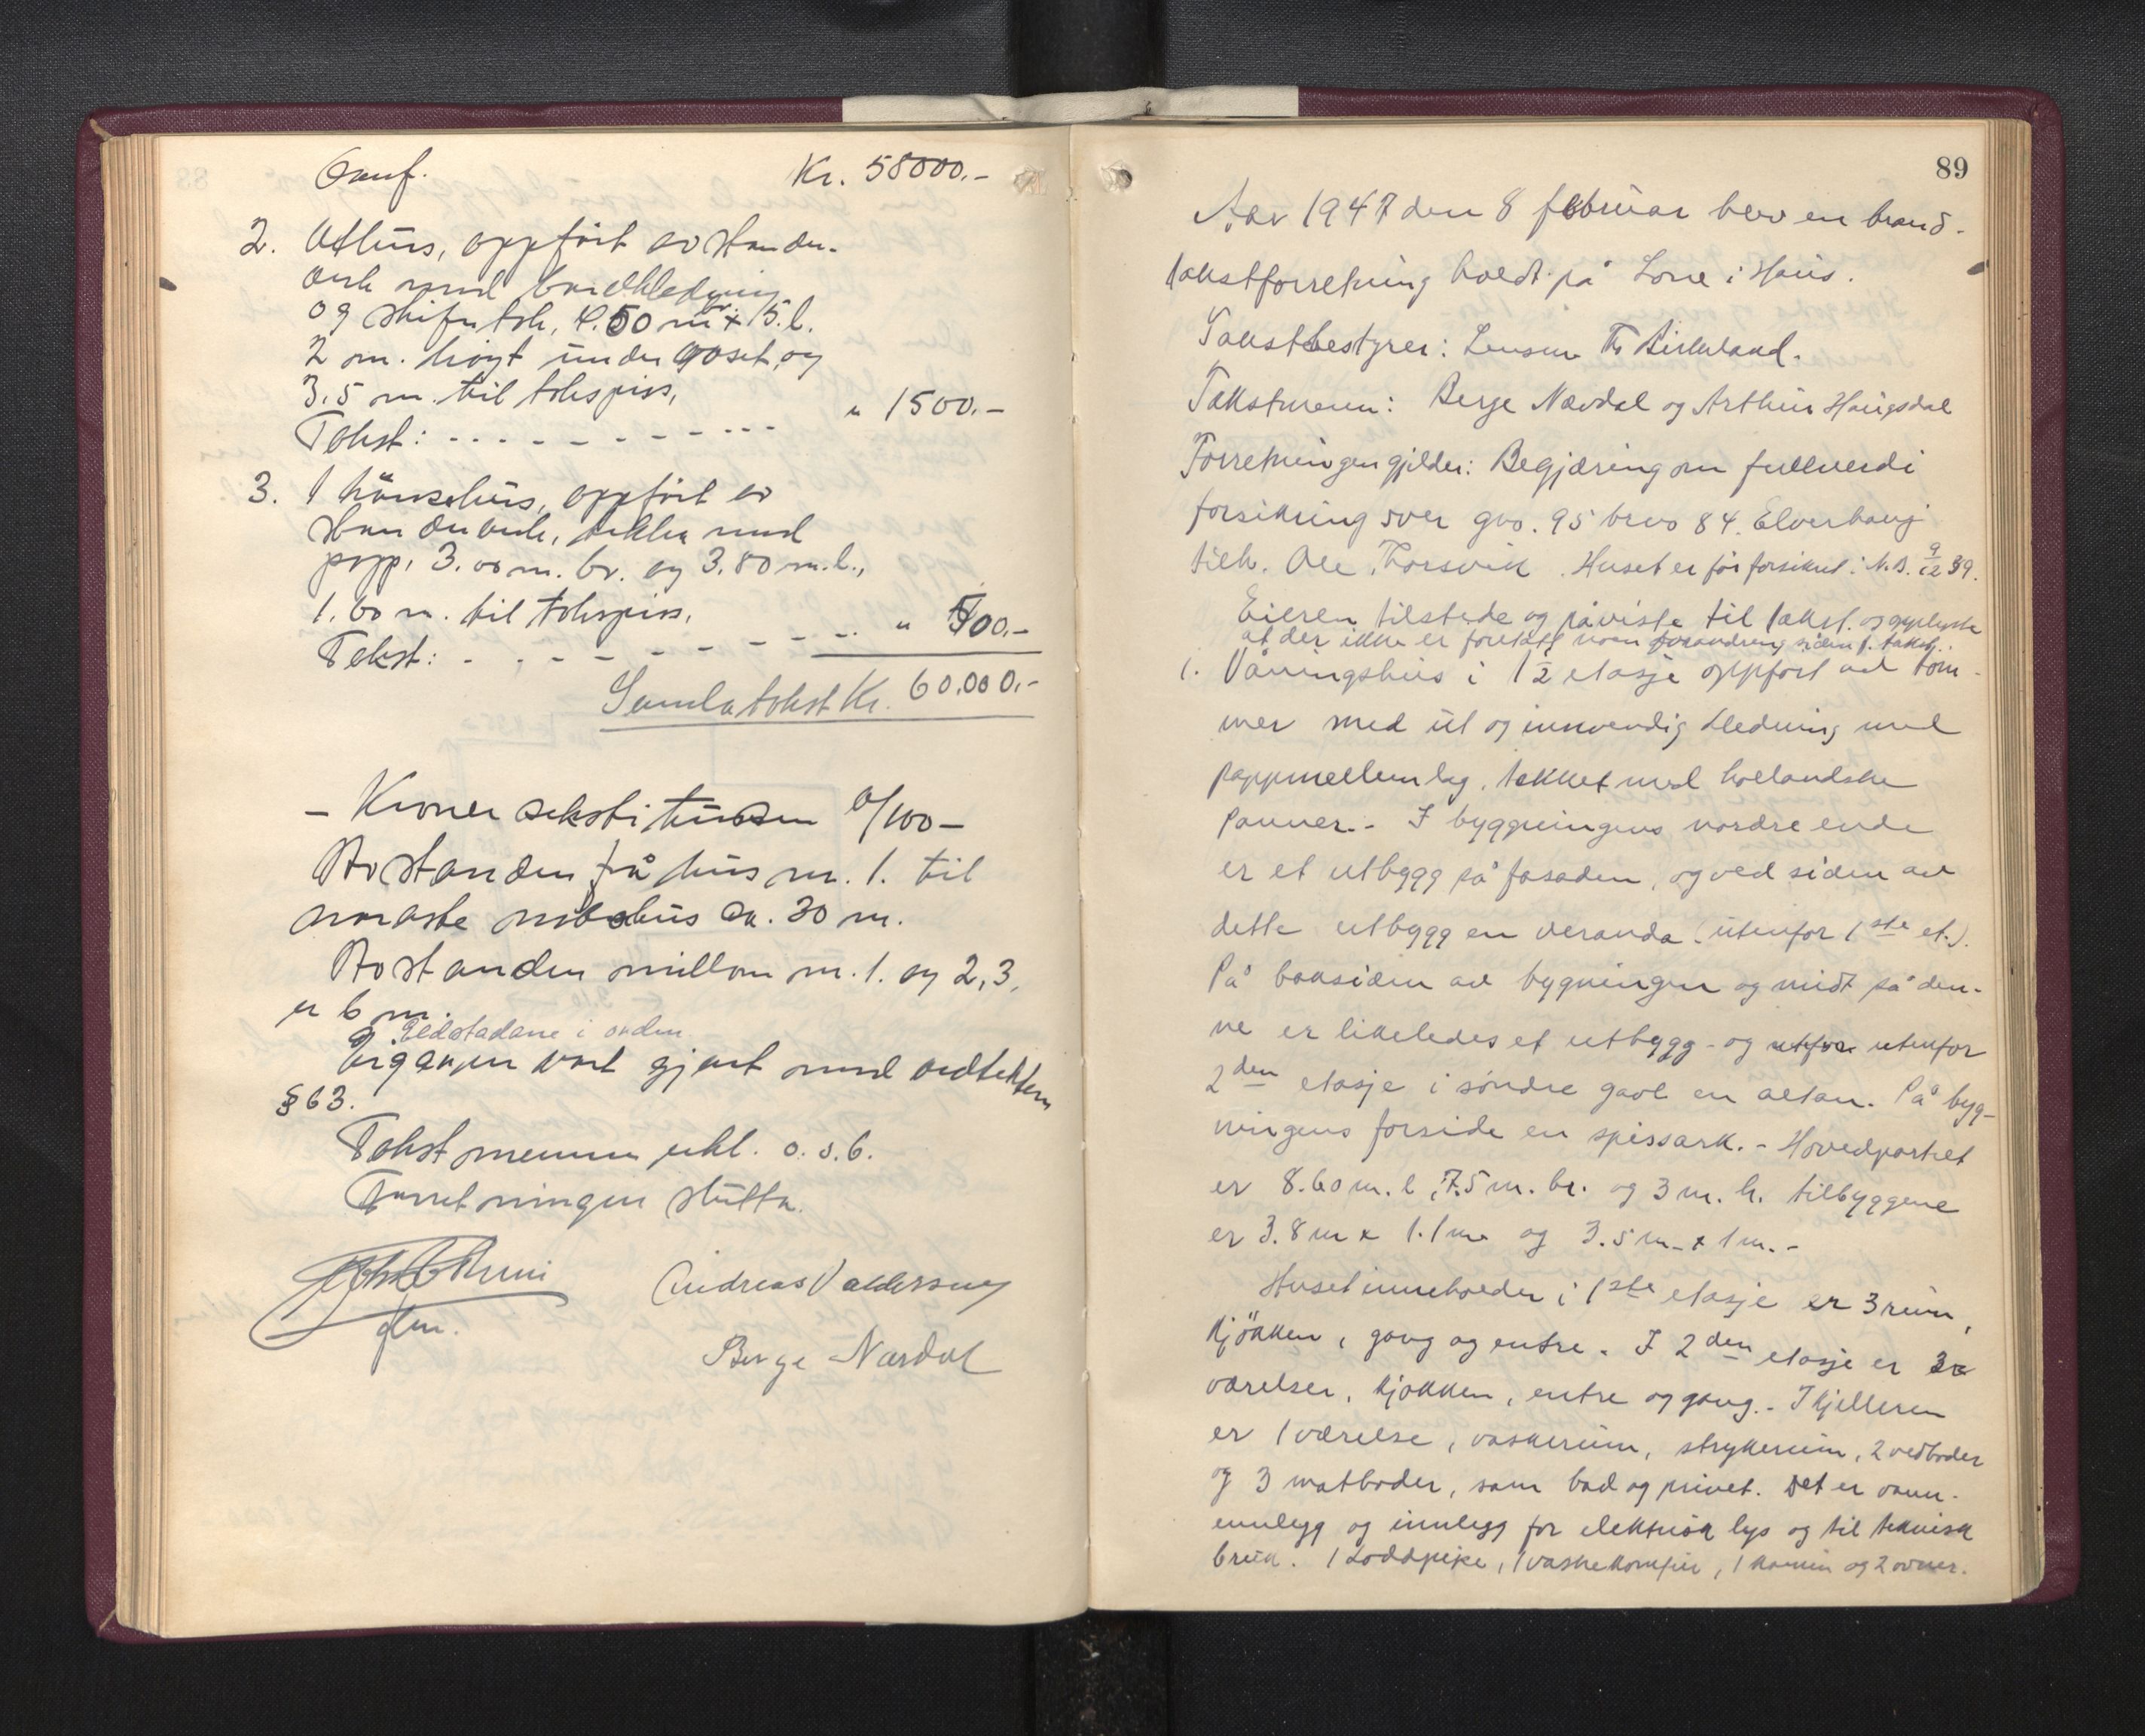 Overf. Kr. 58000.-
2. Uthus, oppført av stander-
verk med bordkledning
og skifertak, 4.50 m br. x 5. l.
2 m. høgt under raset, og
3.5 m. til takspiss,
Takst: - - - - - - - - - - - " 1500.-
3. 1 hønsehus, oppført av
standerverk, tekka med
papp, 3.00 m. br. og 3.80 m. l.,
1.60 m. til takspiss.
Takst: - - - - - - - - - " 500.-
Samla takst Kr. 60.000.-
- Kroner seksti tusen 0/100 -
Avstanden frå hus nr. 1. til
næraste nabohus ca. 30 m.
Avstanden millom nr. 1. og 2, 3,
er 6 m.
Eldstadane i orden
Eigaren vart gjort med vedtektene
§ 63.
Takstmennene utl. o. s. b.
Forretningen slutta.
lm.
Andreas Valdersnes
Berge Nævdal
89
Aar 1947 den 8 februar blev en brand-
takstforretning holdt på Lone i Haus.
Takstbestyrer: Lensm. Th Birkeland.
Takstmenn: Berge Nævdal og Arthur Haugsdal
Forretningen gjelder: Begjæring om fullverdi
forsikring over gno. 95 brno 84. Elverhaug
tilh. Ole Thorsvik. Huset er før forsikret i N.B. 9/12 39.
Eieren tilstede og påviste til takst. og opplyste
at der ikke er foretatt noen forandring siden f. takst.
1. Våningshus i 1 1/2 etasje oppført av tøm-
mer med ut og innvendig kledning med
pappmellemlag, tekket med hollandske
panner. - I byggningens nordre ende
er et utbygg på fasaden, og ved siden av
dette utbygg en veranda (utenfor 1ste et.).
På baksiden av bygningen og midt på den-
ne er likeledes et utbygg - og utfor utenfor
2den etasje i søndre gavl en altan. På byg-
ningens forside en spissark. - Hovedpartiet
er 8.60 m. l, 7.5 m. br. og 3 m. h. tilbyggene
er 3.8 m x 1.1 m og 3.5 m. x 1 m. -
Huset inneholder i 1ste etasje er 3 rum,
kjøkken, gang og entre. I 2den etasje er 3
værelser, kjøkken, entre og gang. - I kjelleren
er 1 værelse, vaskerum, strykerum, 2 vedboder
og 3 matboder, samt bad og privet. Det er vann-
innlegg og innlegg for elektrisk lys og til teknisk
bruk. 1 Loddpipe, 1 vaskekomfur, 1 kamin og 2 ovner.